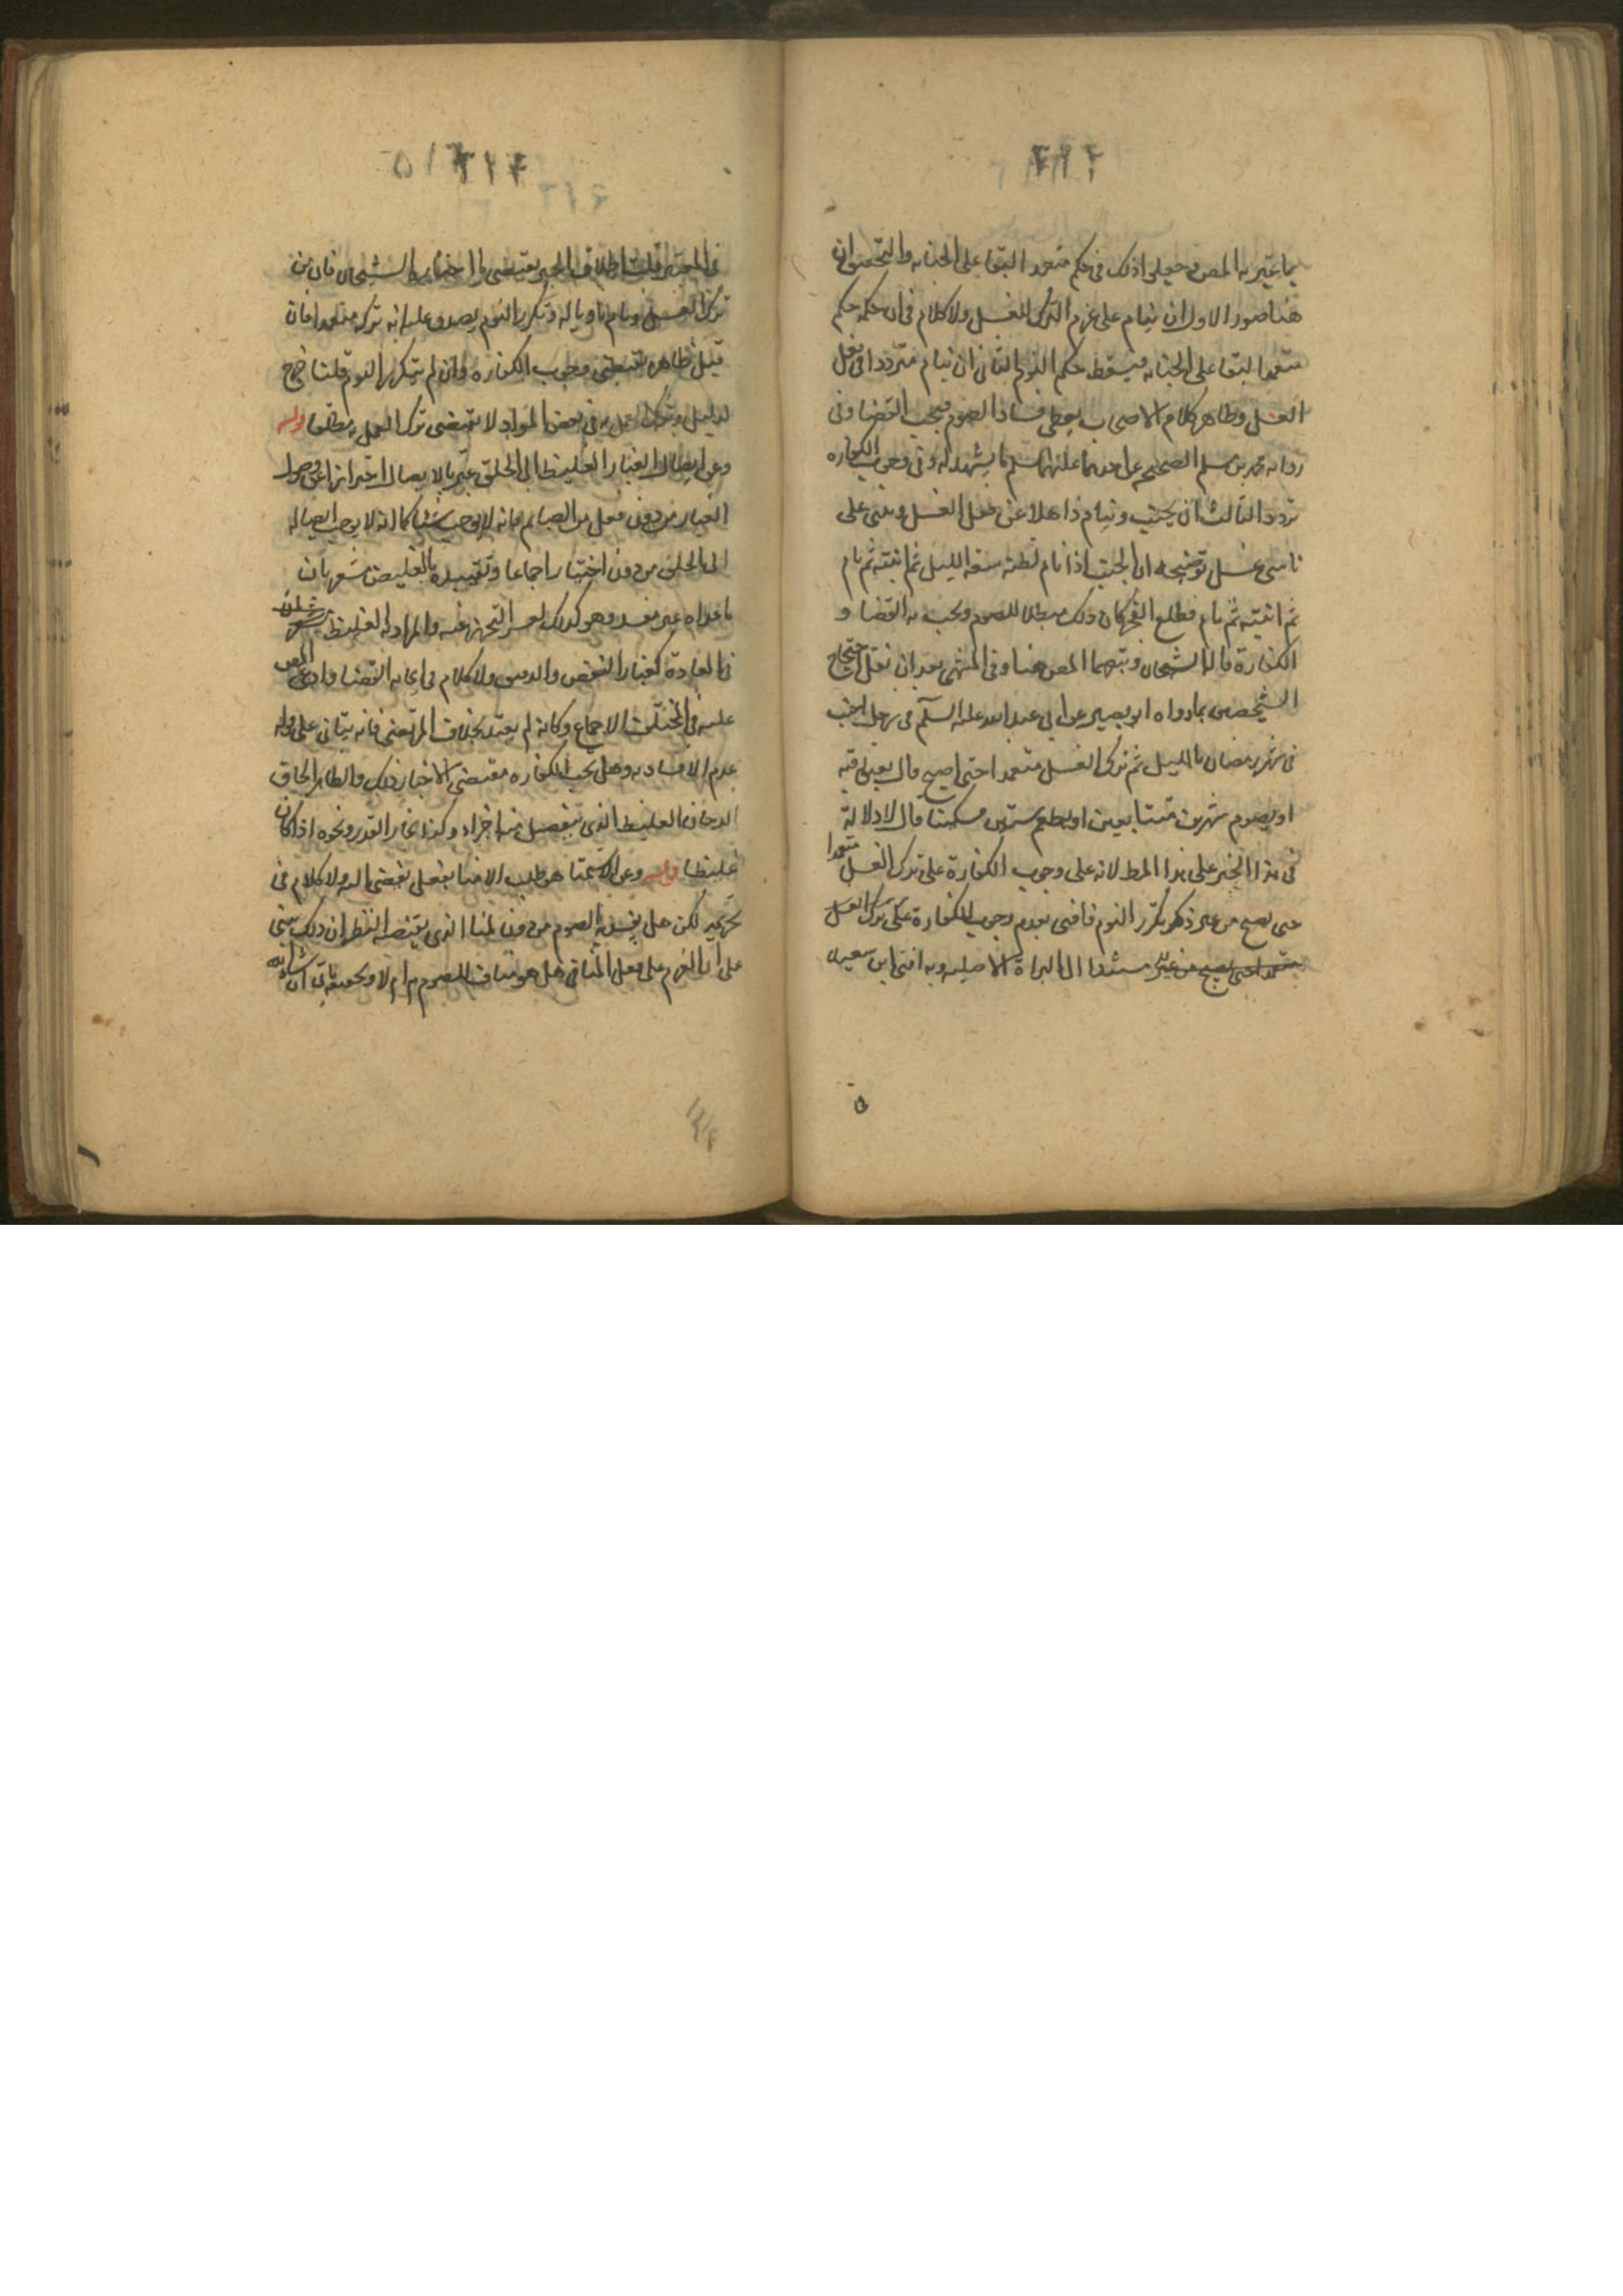 ۴۱۲
بما عبر به المصن وجعل اذلك فى حكم متعمد البقا على الجنابه والتحقيق ان
هنا صور الاول ان ينام على عزم الترك للغسل ولا كلام فى ان حكمه حكم
متعمد البقا على الجنابه فيسقط حكم النوم الثانى ان ينام مترددا فى فعل
الغسل وظاهر كلام الاصحاب يعطى فساد الصوم فيجب القضا وفى
روايه محمد بن مسلم الصحيح عن احدهما عليهما السلم ما يشهد له وفى وجوب الكفاره
تردد الثالث ان يجنب وينام ذاهلا عن فعل الغسل ويبنى على
ناسى غسل توضيحه ان الجنب اذا نام نطنه سعه الليل ثم انتبه ثم نام
ثم انتبه ثم نام فطلع الفجر كان ذلك مبطلا للصوم ويجب به القضا و
الكفارة قاله الشيخان وتبعهما المصن هنا وفى المنتهى بعد ان نقل احتجاج
الشيخين بما رواه ابو بصير عن ابى عبد الله عليه السلم فى رجل اجنب
فى شهر رمضان بالليل ثم ترك الغسل متعمدا حتى اصبح قال يعتق رقبه
او يصوم شهرين متتابعين او يطعم ستين مسكينا قال لا دلالة
فى هذا الخبر على هذا المط لانه على وجوب الكفارة على ترك الغسل متعمدا
حتى يصبح من غير ذكر تكرر النوم فافتى بعدم وجوب الكفارة على ترك الغسل
متعمدا حتى يصبح من غير مستندا الى البراة الاصليه وبه افتى ابن سعيد
۵
فى المعتبر قلت اطلاق الخبر يقتضى ما اختاره الشيخان فان من
ترك الغسل ونام ناويا له وتكرر النوم يصدق عليه انه تركه متعمدا فان
قيل ظاهره يقتضى وجوب الكفاره وان لم يتكرر النوم قلنا خرج
لدليل وترك العمل به فى بعض المواد لا يقتضى ترك العمل به مطلقا قوله
وعن ايصال الغبار الغليظ الى الحلق عبر بالايصال احترازا عن وصول
الغبار من دون فعل من الصايم فانه لا يوجب شيئا كما انه لا يوجب ايصاله
الى الحلق من دون اختيار اجماعا وتقييده بالغليض مشعر بان
ما عداه غير مفسد وهو كذلك لعسر التحرز عنه والمراد بالغليظ
فى العادة كغبار النفض والدقيق ولا كلام فى ايجابه القضا وادعى المصن
عليه فى المختلف الاجماع وكانه لم يعتد بخلاف المرتضى فانه يتاتى على قوله
عدم الافساد به وهل يجب الكفاره مقتضى الاخبار ذلك والظاهر الحاق
الدخان الغليظ الذى يتفصل منه اجزاء وكذا بخار القدر ونحوه اذا كان
غليظا قوله وعن الاستمنا هو طلب الامنا بفعل يفضى اليه ولا كلام فى
تحريمه لكن هل يفسد به الصوم من دون المنا الذى يقتضيه النظر ان ذلك يبنى
على ان العزم على فعل المنافى هل هو مناف للصوم ام لا وتحقيقه ياتى ان شاء الله